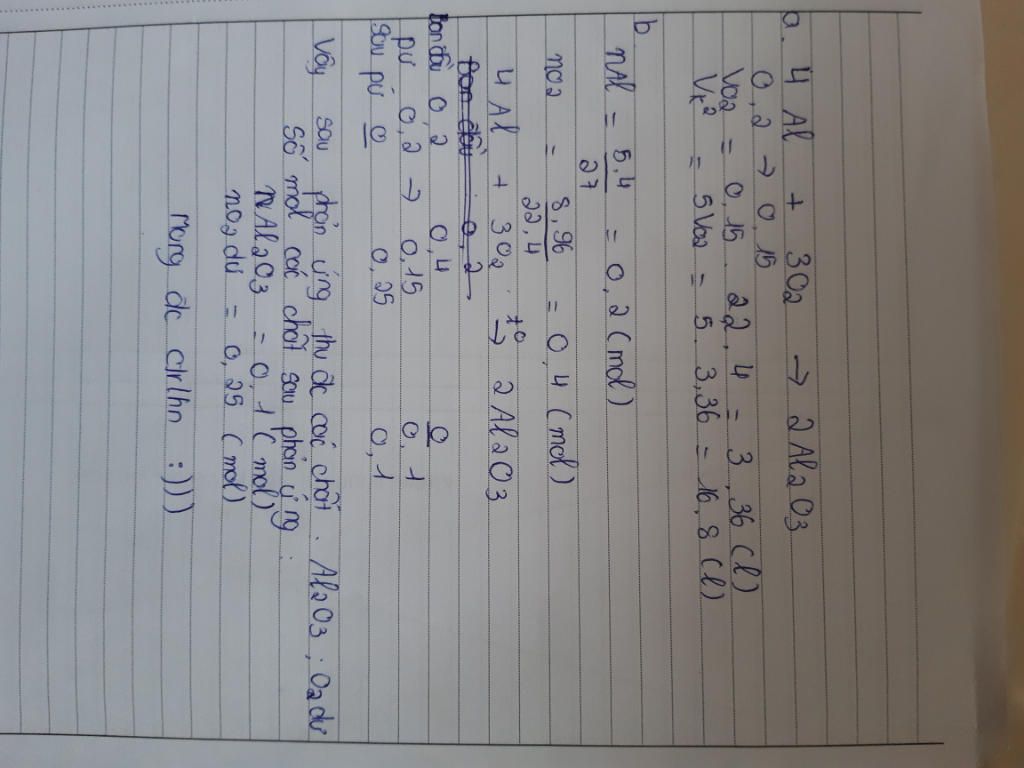 a. 4 Al + 3O2 → 2Al2O3
0,2 → 0,15
VO2 = 0,15. 22,4 = 3,36 (l)
Vk2 = 5VO2 = 5. 3,36 = 16,8 (l)
b.
nAl = 5,4/27 = 0,2 (mol)
nO2 = 8,96/22,4 = 0,4 (mol)
4 Al + 3O2 t° → 2Al2O3
Ban đầu : 0,2
Ban đầu 0,2 0,4 0
pứ 0,2 → 0,15 0,1
sau pứ 0 0,25 0,1
Vậy sau phản ứng thu đc các chất. Al2O3, O2dư
Số mol các chất sau phản ứng :
nAl2O3 = 0,1 (mol)
nO2dư = 0,25 (mol)
Mong đc ctrlhn :)))